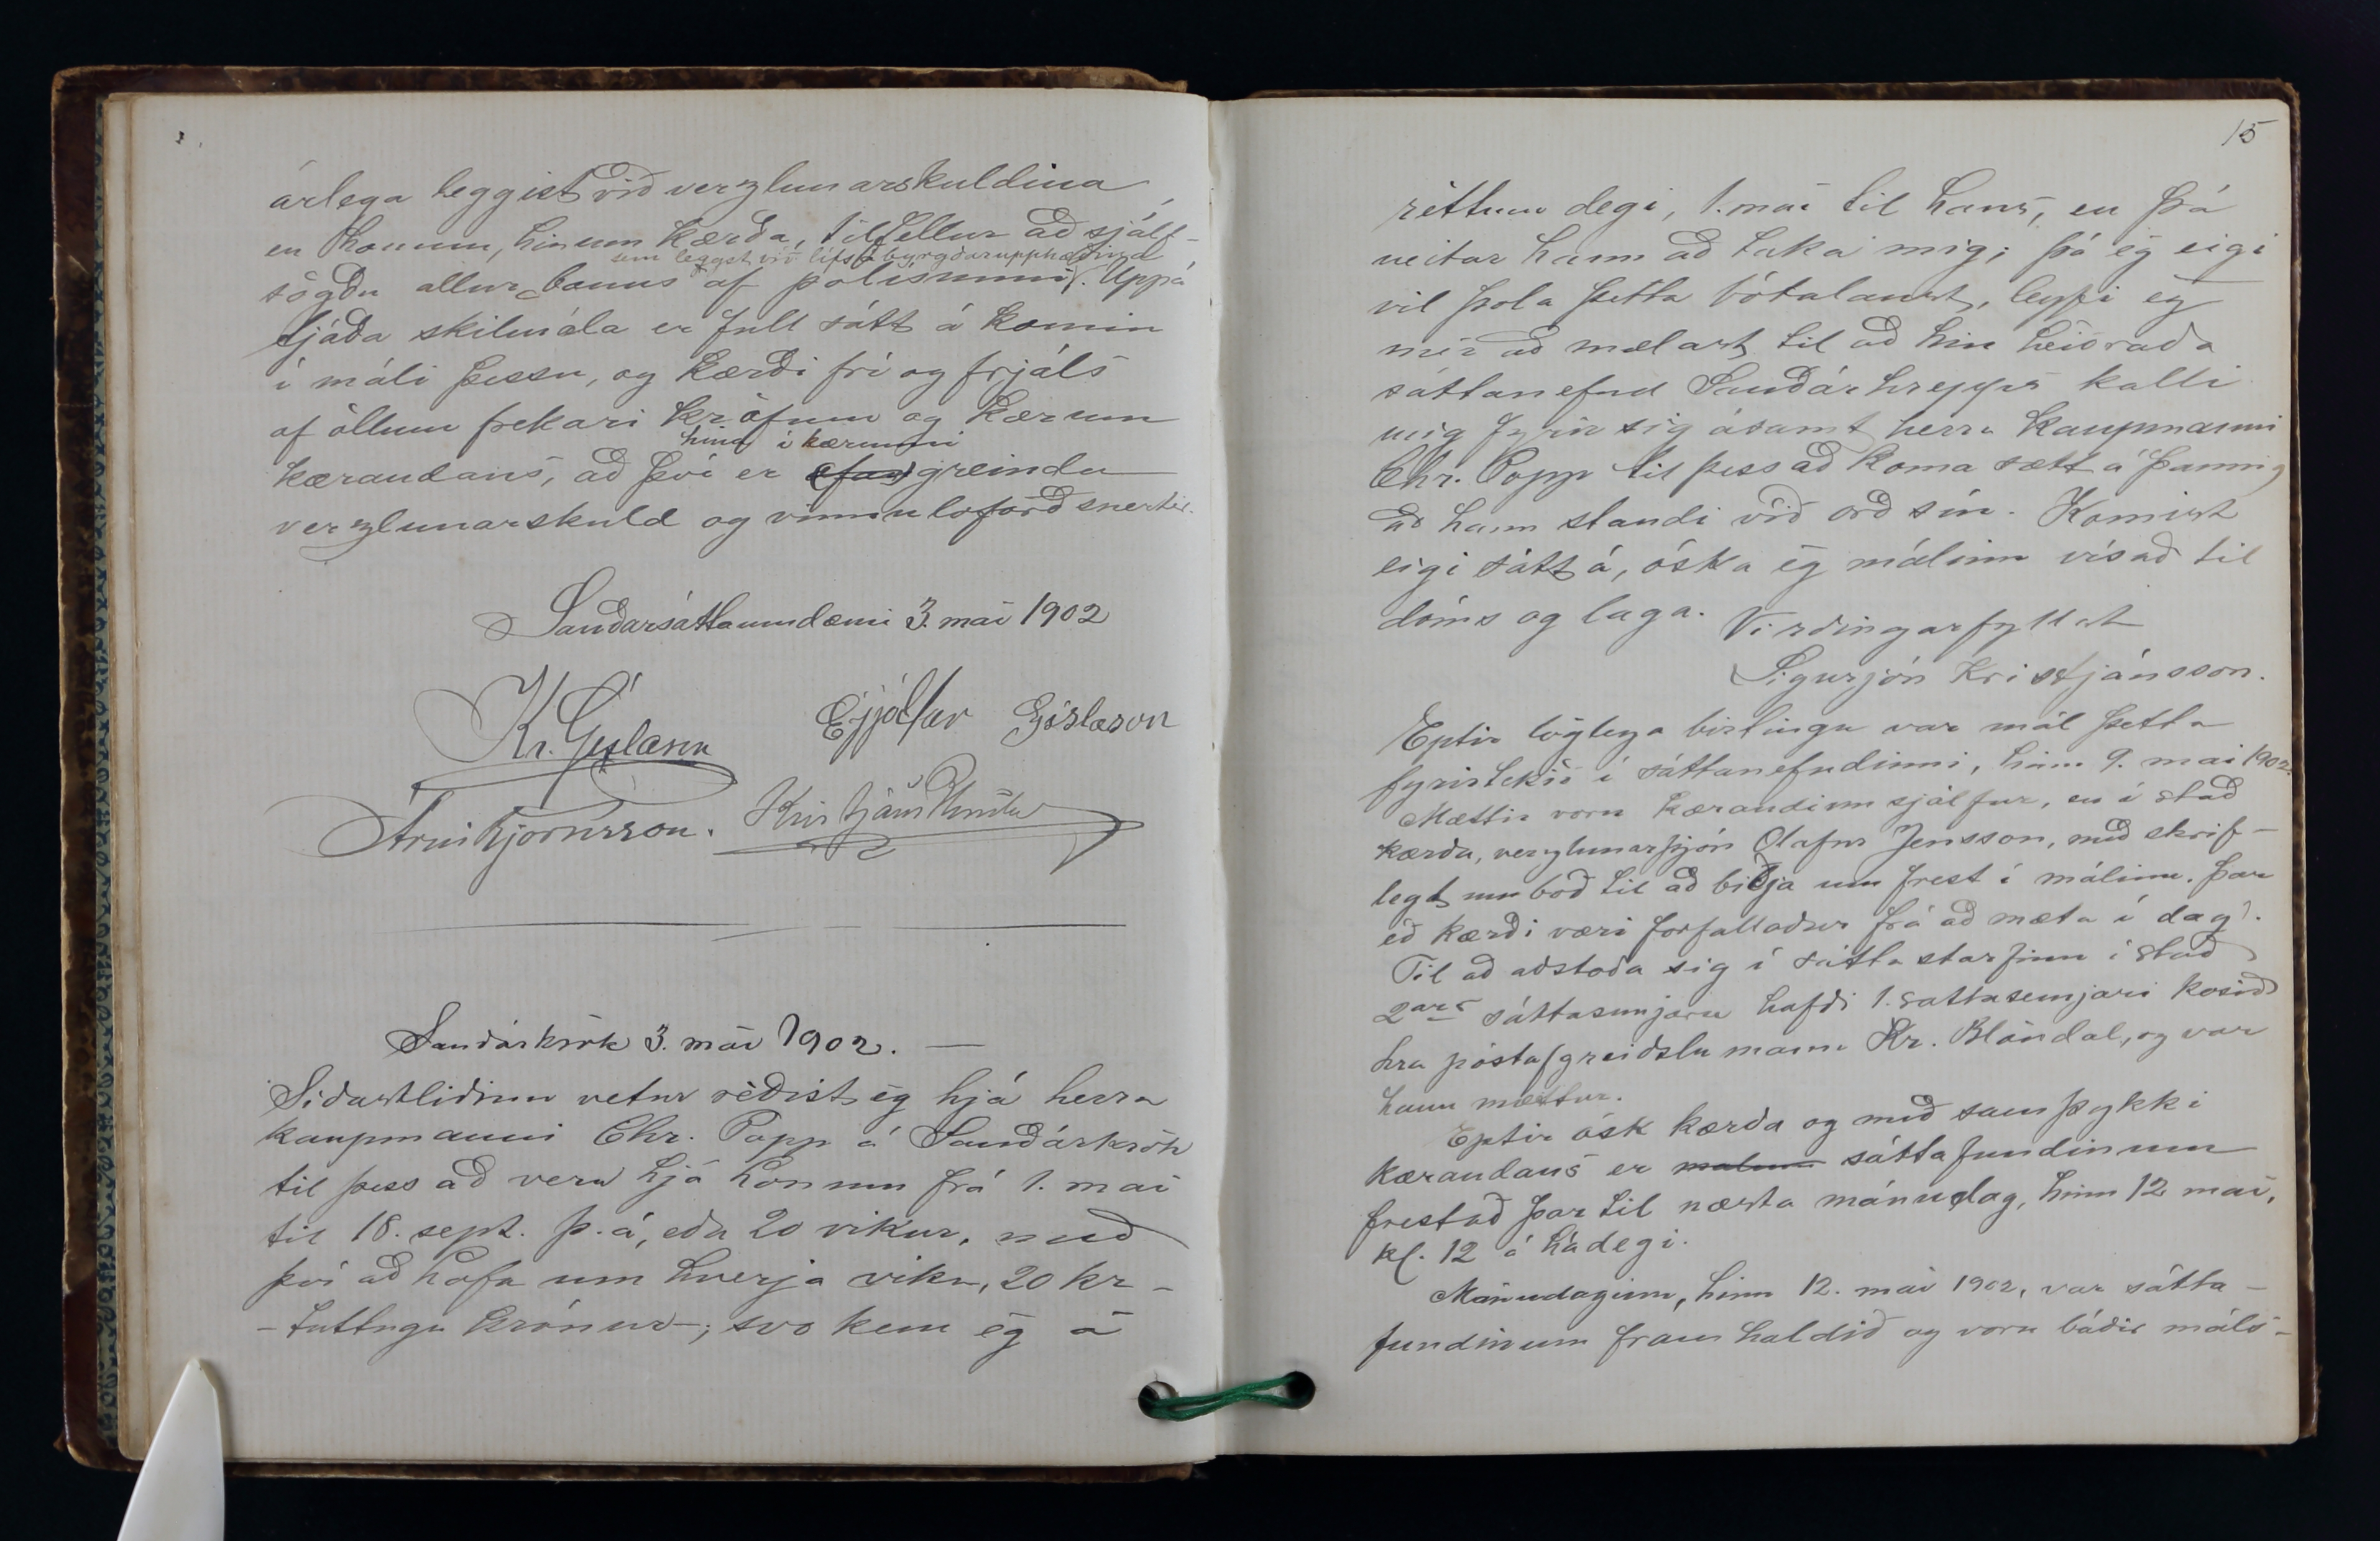 árlega leggist við verzlunarskuldina,
en honum, hinum kærða, tilfellur að sjálf-
sem leggst við lífsábyrgðarupphæðina
sögðu allur bonus af polisunni. Uppá
tjáða skilmála er full sátt á komin
í máli þessu, og kærði frí og frjáls
af öllum frekari kröfum og kærum
hina í kærunni
kærandans, að því er greindu
verzlunarskuld og vinnuloforð snertir.
Sauðársáttaumdæmi 3. mai 1902
Kr. Gíslason Eyjólfur Gíslason
Árni Björnsson. Kristján
Sauðárkrók 3. mai 1902. —
Síðastliðinn vetur réðist eg hjá herra
kaupmanni Chr. Popp á Sauðárkrók
til þess að vera hjá honum frá 1. mai
til 18. sept. þ. á, eða 20 vikur, með
því að hafa um hverja viku, 20 kr -
- tuttugu krónur -; svo kem eg á
15
réttum degi, 1. mai til hans, en þá
neitar hann að taka mig; þá eg eigi
vil þola þetta bótalaust, leyfi eg
mér að mælast til að hin heiðraða
sáttanefnd Sauðárhrepps kalli
mig fyrir sig ásamt herra kaupmanni
Chr. Popp til þess að koma sætt á þannig
að hann standi við orð sín. Komist
eigi sátt á, óska eg málinu vísað til
dóms og laga. Virðingarfyllst
Sigurjón Kristjánsson.
Eptir löglega birtingu var mál þetta
fyrirtekið í sáttanefndinni, hinn 9. mai 1902.
Mættir voru kærandinn sjálfur, en í stað
kærða, verzlunarþjón Olafur Jensson, með skrif-
legt umboð til að biðja um frest í málinu. Þar
eð kærði væri forfallaður frá að mæta í dag.
Til að aðstoða sig í sáttastarfinu í stað
2ars sáttasemjara hafði 1. sáttasemjari kosið
hra póstafgreiðslumann Kr. Blöndal, og var
hann mættur.
Eptir ósk kærða og með samþykki
kærandans er málinu sáttafundinum
frestað þar til næsta mánudag, hinn 12 mai,
kl. 12 á hádegi.
Mánudaginn, hinn 12. mai 1902, var sátta-
fundinum fram haldið og voru báðir máls-